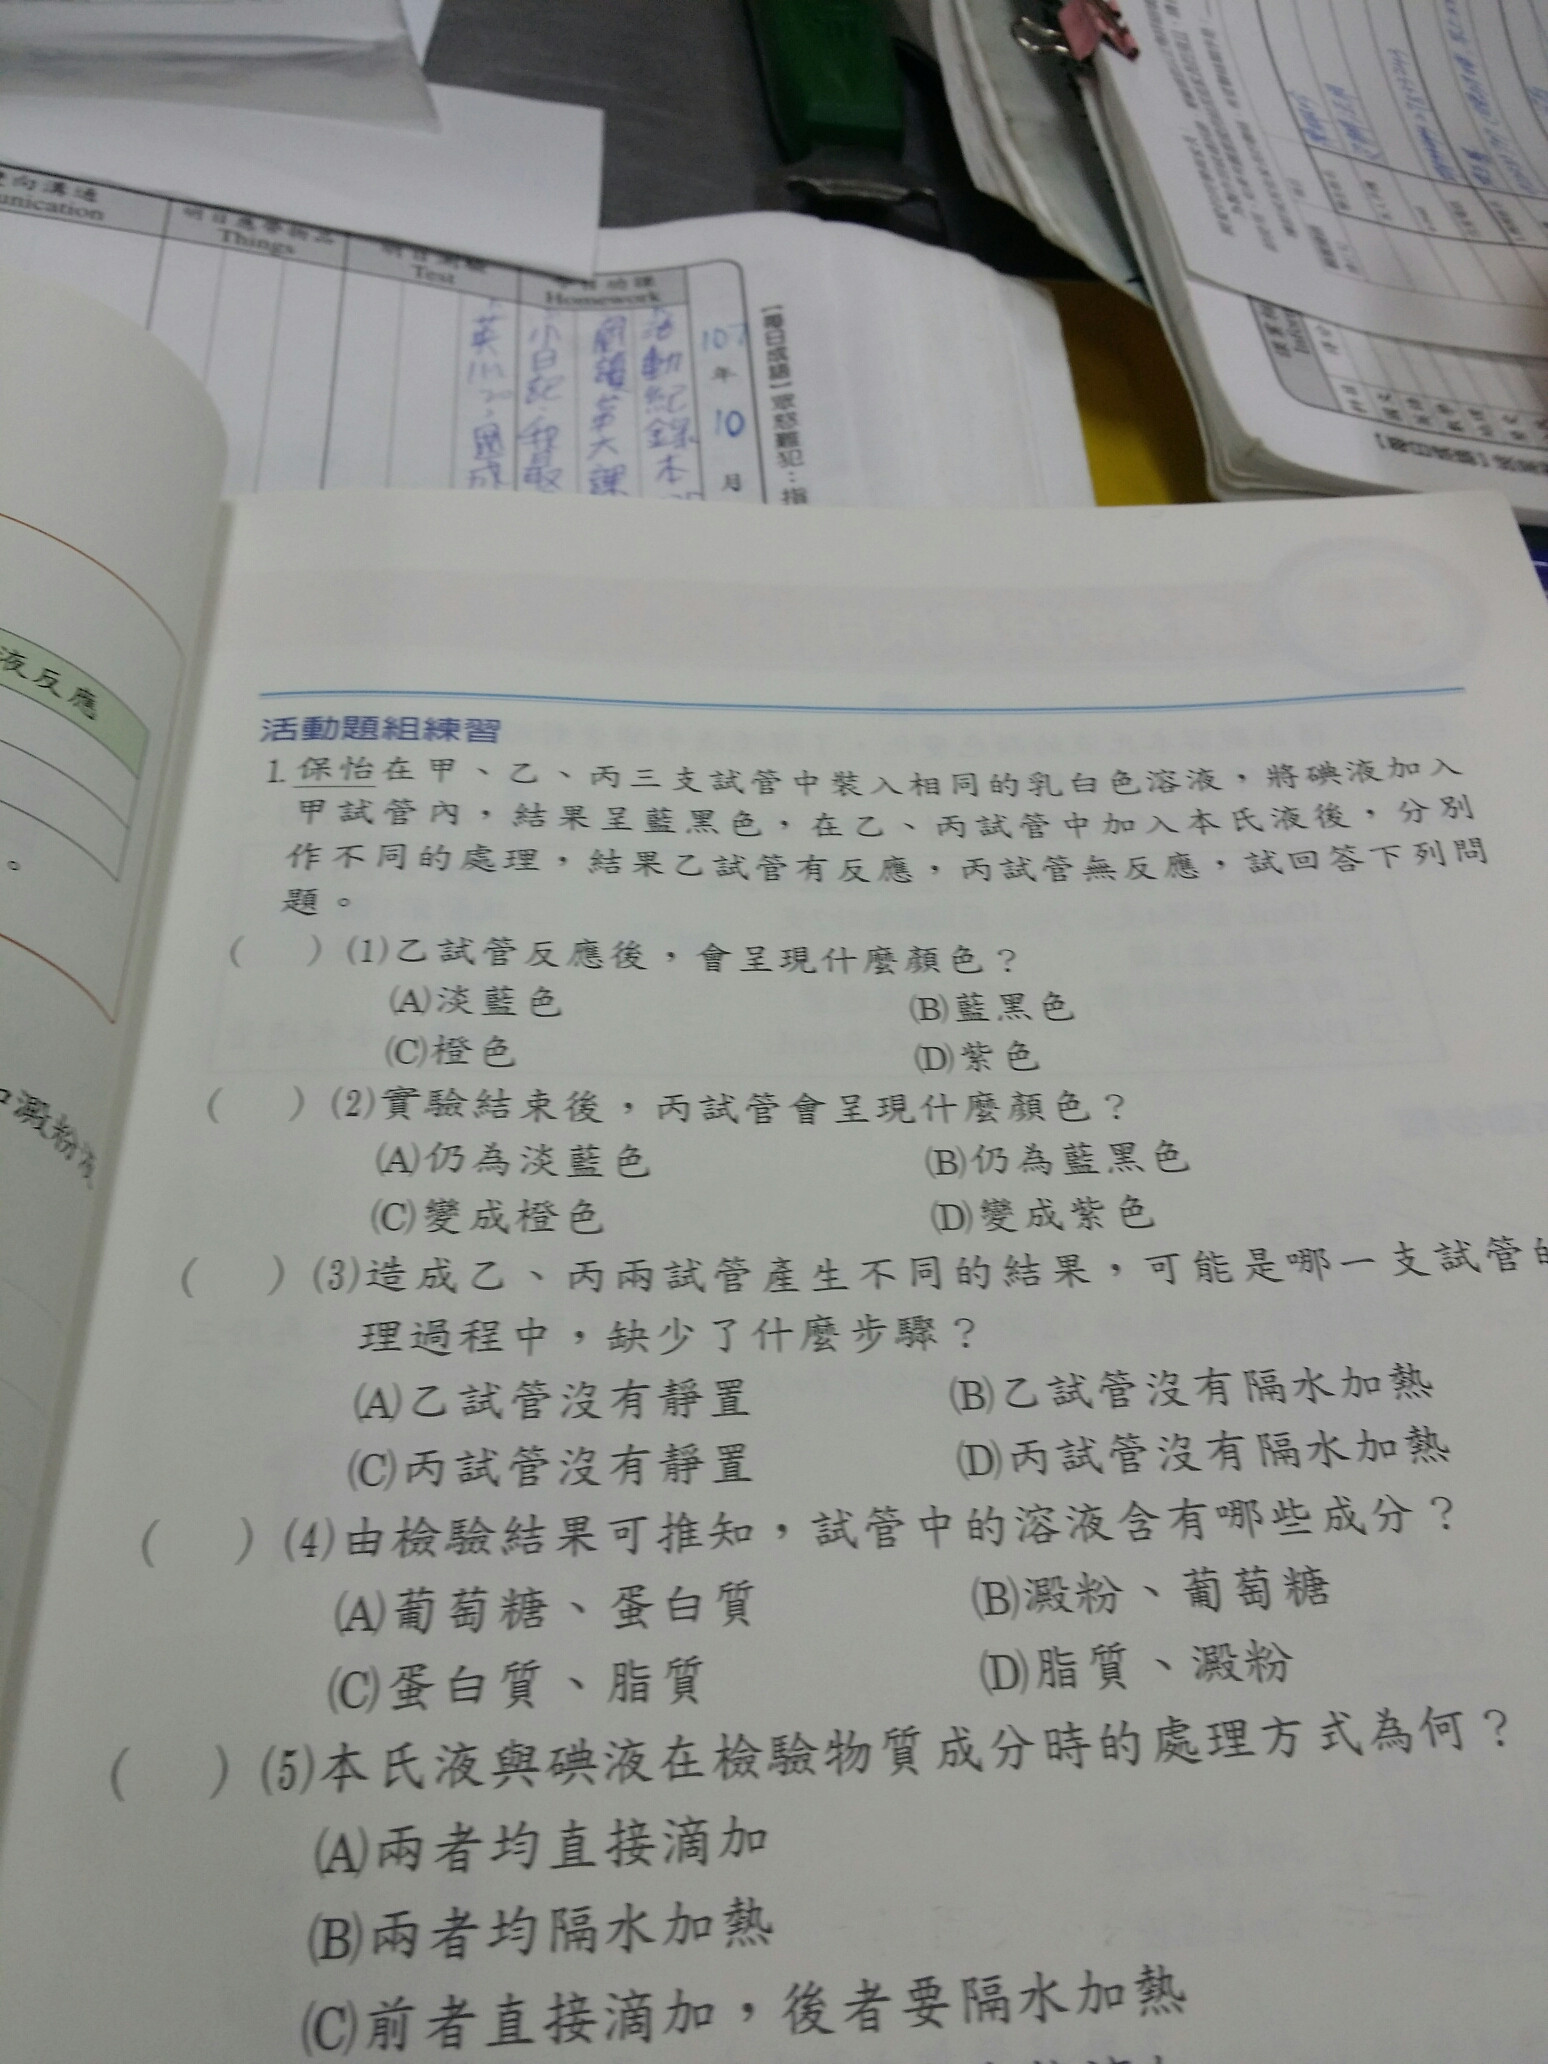 Communication
明日應帶物品
Things
Test
Homework
107
年
10
月
活動紀錄本
小日記
【每日成語】眾怒難犯：指
液反應
中澱粉液
活動題組練習
1.保怡在甲、乙、丙三支試管中裝入相同的乳白色溶液，將碘液加入
甲試管內，結果呈藍黑色，在乙、丙試管中加入本氏液後，分別
作不同的處理，結果乙試管有反應，丙試管無反應，試回答下列問
題。
（　）(1)乙試管反應後，會呈現什麼顏色？
(A)淡藍色 (B)藍黑色
(C)橙色 (D)紫色
（　）(2)實驗結束後，丙試管會呈現什麼顏色？
(A)仍為淡藍色 (B)仍為藍黑色
(C)變成橙色 (D)變成紫色
（　）(3)造成乙、丙兩試管產生不同的結果，可能是哪一支試管的
理過程中，缺少了什麼步驟？
(A)乙試管沒有靜置 (B)乙試管沒有隔水加熱
(C)丙試管沒有靜置 (D)丙試管沒有隔水加熱
（　）(4)由檢驗結果可推知，試管中的溶液含有哪些成分？
(A)葡萄糖、蛋白質 (B)澱粉、葡萄糖
(C)蛋白質、脂質 (D)脂質、澱粉
（　）(5)本氏液與碘液在檢驗物質成分時的處理方式為何？
(A)兩者均直接滴加
(B)兩者均隔水加熱
(C)前者直接滴加，後者要隔水加熱